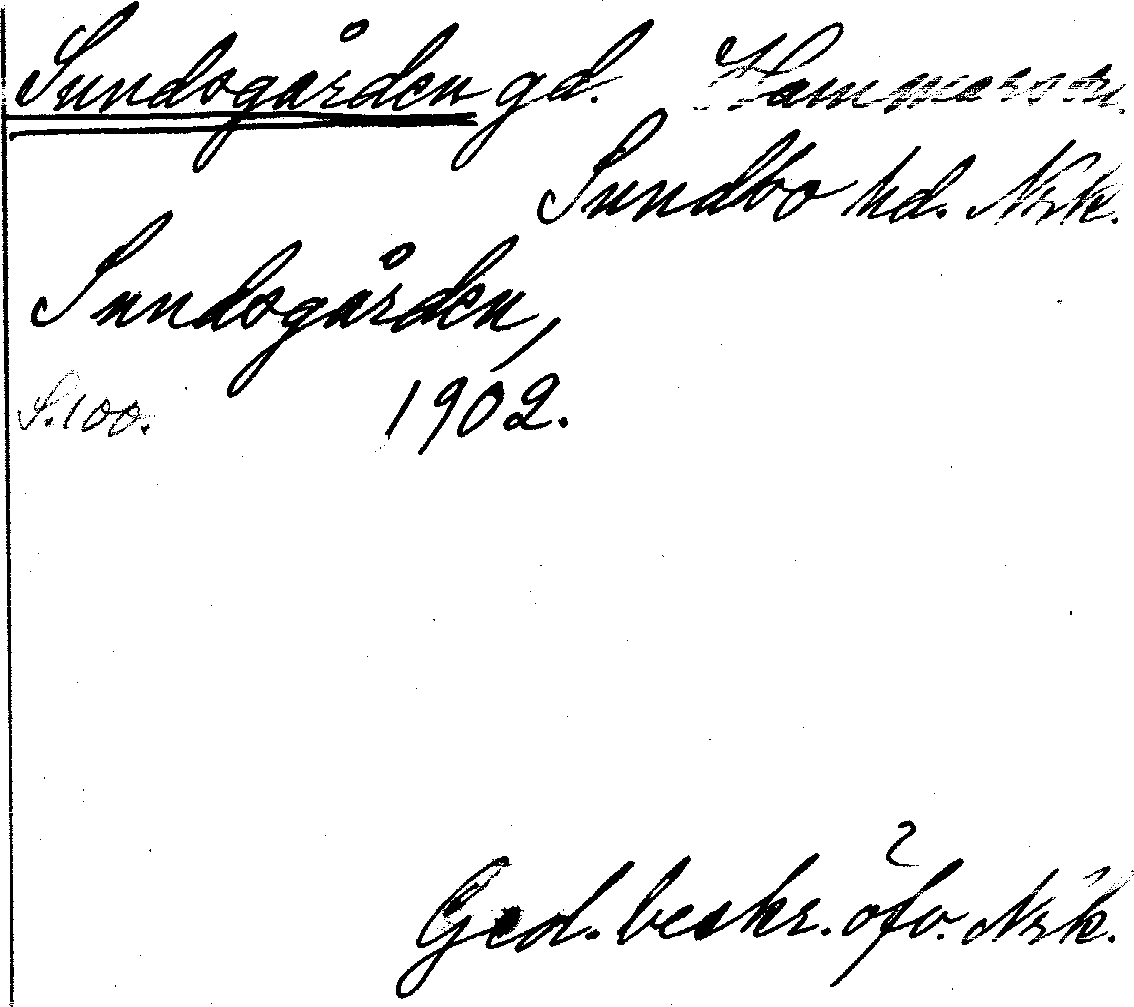 Sundsgården gd. Hammars sn.
Sundbo hd. Nrk.
Sundsgården,
S. 100. 1902.
Geol. beskr. öfv. Nrk.